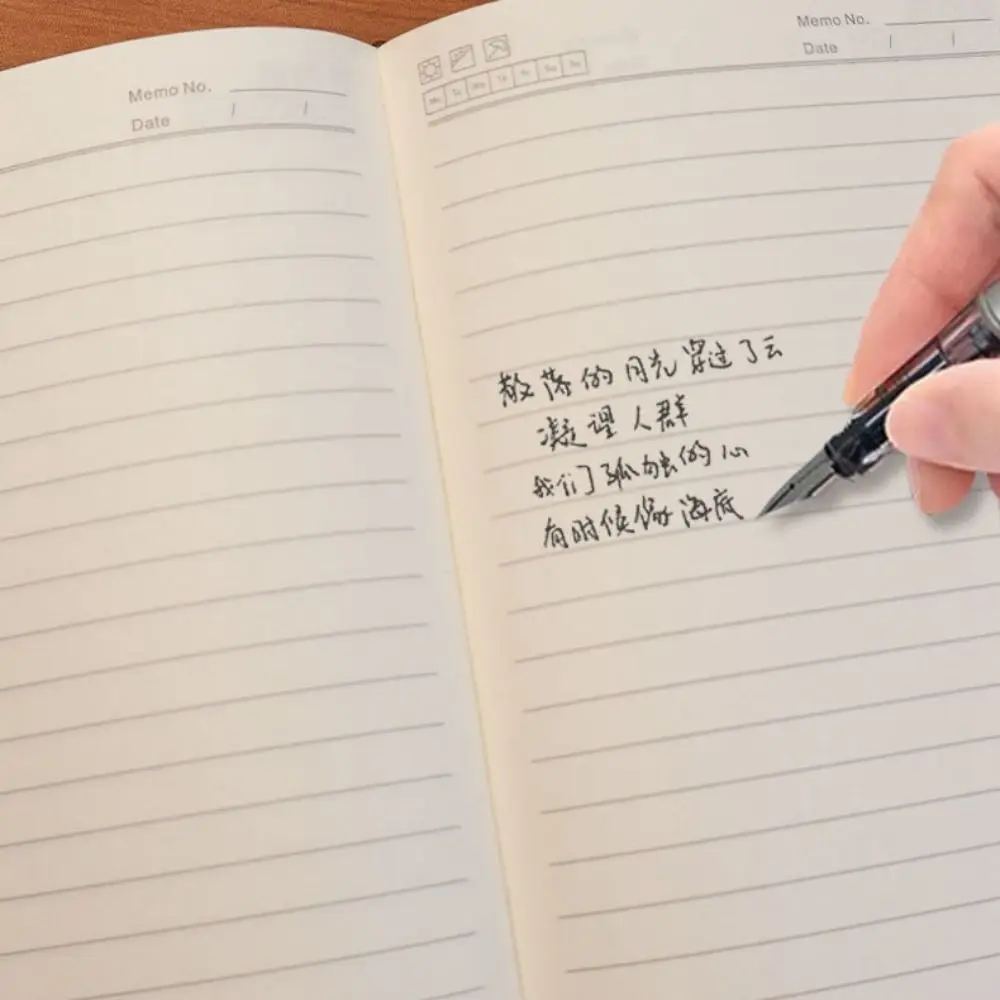 Memo No.
Date / /
Mo Tu We Th Fr Sa Su
Memo No.
Date / /
散落的月光穿过了云
凝人群
我们孤独的心
有时候像海底